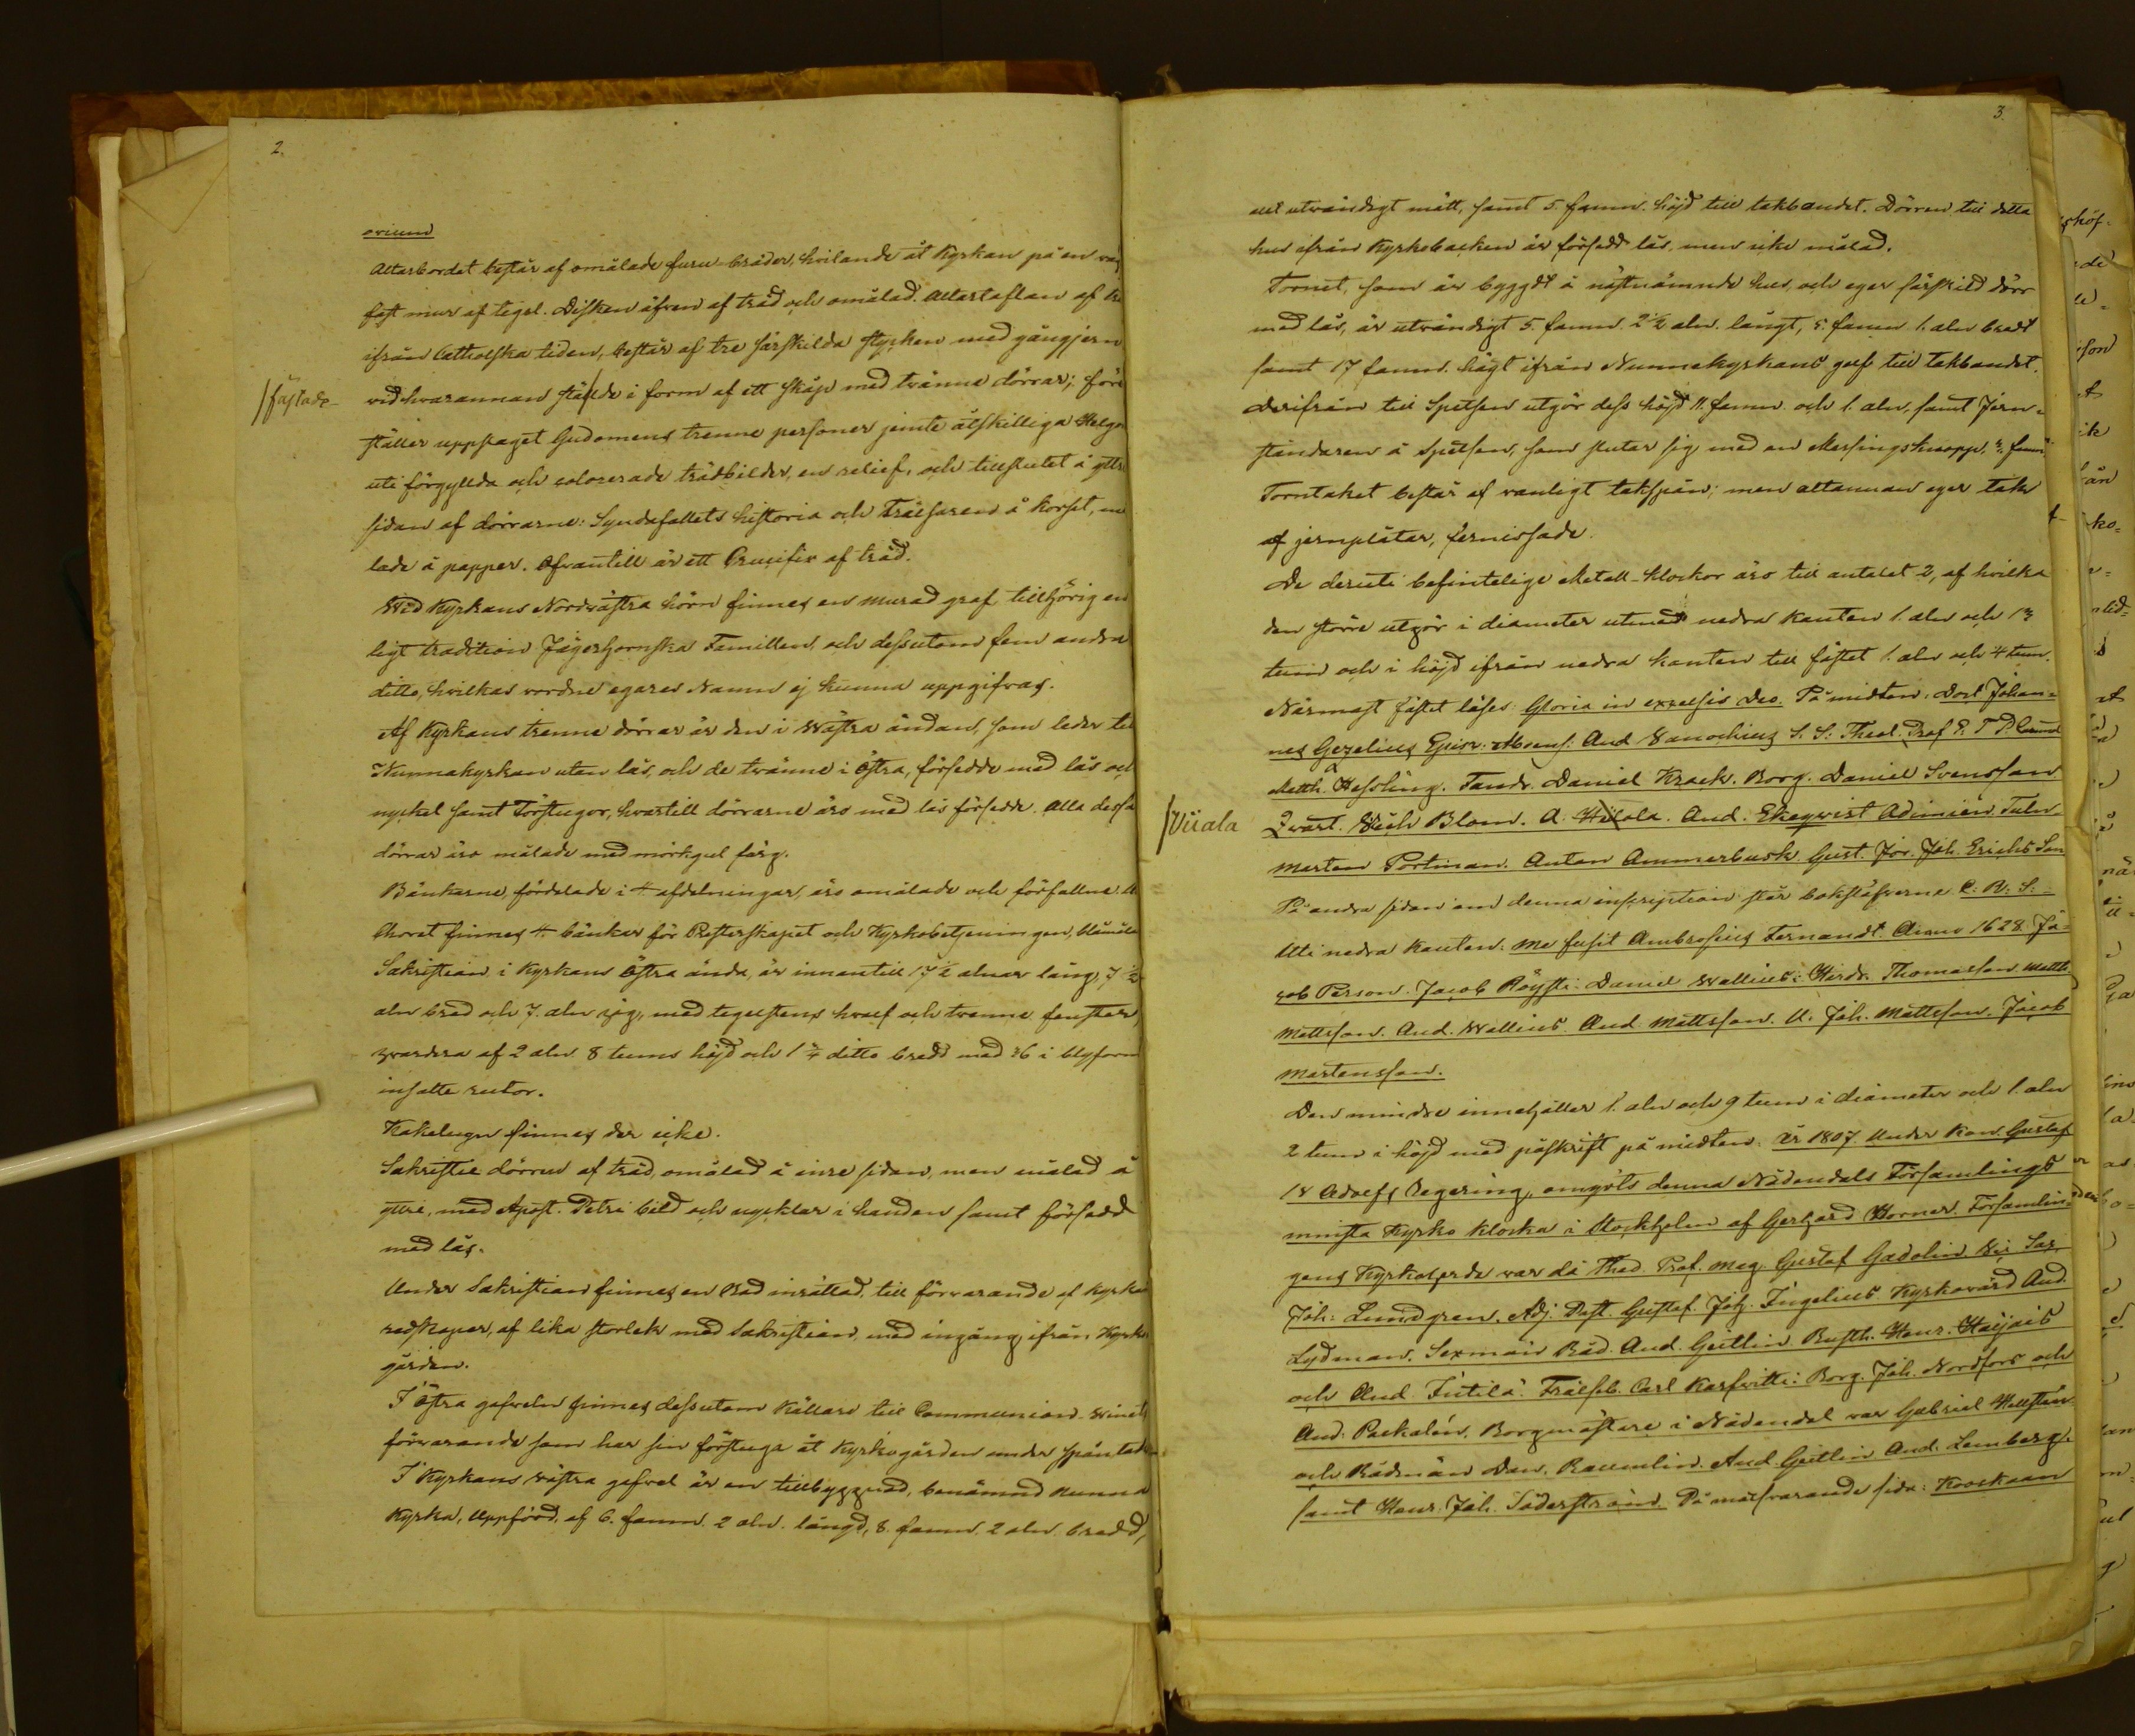 2.
orium
Altarbordet består af omålade furu-bräder, hvilande åt Kyrkan på en
fast mur af tegel. Disken äfven af träd och omålad. Altartaflan af
ifrån Catholska tiden, består af tre särskilda stycken med gångjern
/fästade
vid hvarannan i form af ett skåp med tvänne dörrar; före
ställer upptaget Gudomens trenne personer jemte åtskilliga Helgon
uti förgyllda och colorerade trädbilder, en relief, och tillslutet å yttre
sidan af dörrarne: Syndafallets historia och Frälsaren å korset, må
lade å papper. Ofvantill är ett Crucifix af träd.
Wid Kyrkans Nordvästra hörn finnes en murad graf tillhörig en
ligt tradition Jägerhornska Familien, och dessutom fem andra
ditto, hvilkas vordne egares Namn ej kunna uppgifvas.
Af Kyrkans trenne dörrar är den i Wästra ändan, som leder till
Nunnakyrkan utan lås, och de tvänne i Östra, försedde med lås och
nyckel samt Förstugor, hvartill dörrarne äro med lås försedde. Alla dessa
dörrar äro målade med mörkgul färg.
Bänkarne, fördelade i 4 afdelningar, äro omålade och förfallne.
Choret finnes 4 bänkar för Presterskapet och Kyrkobetjeningen,
Sakristian i Kyrkans Östra ända, är innantill 17 1/2 alnar lång, 7 1/2
aln bred och 7. aln hög, med tegelstens hvalf och tvenne fenster,
hvardera af 2 aln 8 tums höjd och 1 3/4 ditto bredd med 36 i blyform
insatte rutor.
Kakelugn finnes der icke.
Sakristie dörren af träd, omålad å inre sidan, men målad å
yttre, med Apost. Petri bild och nycklar i handen samt försedd
med lås.
Under Sakristian finnes en Bod inrättad, till förvarande af Kyrko
redskaper, af lika storlek med Sakristian, med ingång ifrån Kyrko
gården.
I Östra gafveln finnes dessutom Källare till Communion-Winets
förvarande som har sin förstuga åt Kyrkogården under spåntak.
I Kyrkans Wästra gafvel är en tillbyggnad, benämnd Nunna
Kyrka, Uppförd, af 6. famn. 2 aln. längd, 8. famn. 2 aln. bredd,
3.
allt utvändigt mått, samt 5. famn. höjd till takbandet. Dörren till detta
hus ifrån Kyrkobacken är försedd lås, men icke målad.
Tornet, som är byggdt å nästnämnde hus, och eger särskild dörr
med lås, är utvändigt 5. famn. 2 1/2 aln. långt, 5. famn 1. aln bredt
samt 17 famn. högt ifrån Nunnakyrkans golf till takbandet.
Derifrån till Spetsen utgör dess höjd 11. famn. och 1. aln, samt Jern-
ständaren å Spetsen, som slutar sig med en Messingsknapp, famn.
Torntaket består af vanligt takspån; men altannan eger tak
af jernplåtar, fernissade.
De deruti befintelige Metall-Klockor äro till antalet 2, af hvilka
den större utgör i diameter utmed nedra kanten 1. aln och 13
tum och i höjd ifrån nedra kanten till fästet 1. aln och 4 tum.
Närmast fästet läses: Gloria in excelsis Deo. På midten: Doct Johan-
nes Gezelius Episc. Aboens. And Wanochius S. S. Theol. Prof E. T P.
Matth. Hessling. Fändr. Daniel Krack. Borg. Daniel Svensson
/Viiala
Qvart. Erich Blom. A. Hiiola. And. Ekeqvist Adimien Tuln
Marten Portman. Anton Ammerbusk Gust. Jör. Joh. Erichs Son
På andra sidan om denna inscription står bokstäfverne C. R. S.
Uti nedra kanten: Me fusit Ambrosius Fernandt. Anno 1628. Ja-
cob Person. Jacob Röysti. Daniel Wallius: Hindr. Thomasson. Matth.
Mattson. And. Wallius. And Mattsson. U. Joh. Mattsson. Jacob
Martensson.
Den mindre innehåller 1. aln och 9 tum i diameter och 1. aln
2 tum i höjd med påskrift på midten: År 1807. Under Kon. Gustaf
IV Adolfs Regering, omgöts denna Nådendals Församlings
minsta Kyrko klocka i Stockholm af Gerhard Horner. Församlin-
gens Kyrkoherde var då Theol. Prof. Mag. Gustaf Gadolin
Joh: Lundgren, Adj. Past. Gustaf. Joh. Ingelius. Kyrkovärd And.
Lydman. Sexmän Råd. And. Geitlin Rusth. Henr. Haijais
och And. Intilä. Frälseb. Carl Karfvitti: Borg. Joh. Nordfors och
And. Packalén. Borgmästare i Nådendal var Gabriel Hellstén
och Rådmän Dan. Raumlin. And Geitlin And. Lemberg.
samt Henr. Joh. Söderstrand. På motsvarande sida: Koockaan